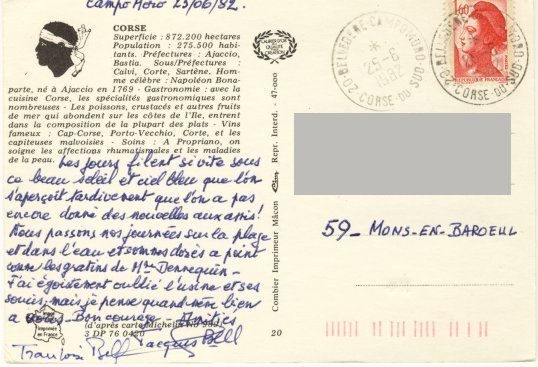 Campo Moro 23/06/82.
CORSE
Superficie : 872.200 hectares
Population : 275.500 habi-
tants. Préfectures : Ajaccio,
Bastia. Sous/Préfectures :
Calvi, Corte, Sartène. Hom-
me célèbre : Napoléon Bona-
parte, né à Ajaccio en 1769 - Gastronomie : avec la
cuisine Corse, les spécialités gastronomiques sont
nombreuses - Les poissons, crustacés et autres fruits
de mer qui abondent sur les côtes de l'Ile, entrent
dans la composition de la plupart des plats - Vins
fameux : Cap-Corse, Porto-Vecchio, Corte, et les
capiteuses malvoisies - Soins : A Propriano, on
soigne les affections rhumatismales et les maladies
de la peau.
Les jours filent si vite sous
ce beau soleil et ciel bleu que l'on
s'aperçoit tardivement que l'on a pas
encore donné des nouvelles aux amis!
Nous passons nos journées sur la plage
et dans l'eau et sommes dorés a point
comme les gratins de Mme Dennequin -
J'ai égoistement oublié l'usine et ses
soucis, mais je pense quand-même bien
a vous - Bon courage - Amitiés
Imprimée
en France
(d'après carte Michelin No 989)
3 DP 76 0420
20
Jacques Bell
Françoise Bell
Combier Imprimeur Mâcon
Repr. Interd. - 47-000
20 BELVEDERE-CAMPOMORO
25-6
1982
CORSE DU SUD
20 BELVEDERE-CAMPOMORO
CORSE-DU-SUD
1,60
REPUBLIQUE FRANÇAISE
59_ MONS-EN-BAROEUL